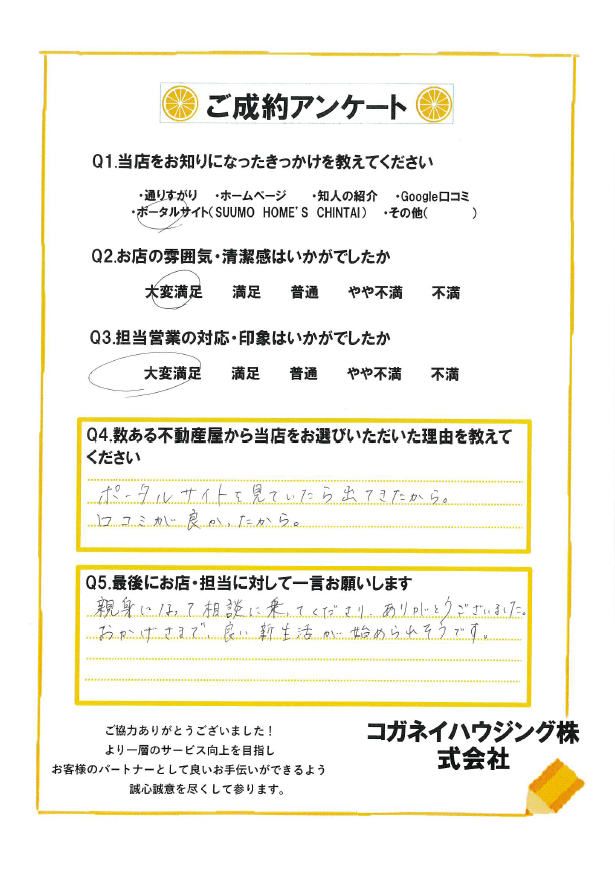 ご成約アンケート
Q1.当店をお知りになったきっかけを教えてください
・通りすがり ・ホームページ ・知人の紹介 ・Google口コミ
・ポータルサイト(SUUMO HOME'S CHINTAI) ・その他( )
Q2.お店の雰囲気・清潔感はいかがでしたか
大変満足 満足 普通 やや不満 不満
Q3.担当営業の対応・印象はいかがでしたか
大変満足 満足 普通 やや不満 不満
Q4.数ある不動産屋から当店をお選びいただいた理由を教えて
ください
ポータルサイトを見ていたら出てきたから。
口コミが良かったから。
Q5.最後にお店・担当に対して一言お願いします
親身になって相談に乗ってくださり、ありがとうございました。
おかげさまで、良い新生活が始められそうです。
ご協力ありがとうございました!
より一層のサービス向上を目指し
お客様のパートナーとして良いお手伝いができるよう
誠心誠意を尽くして参ります。
コガネイハウジング株
式会社